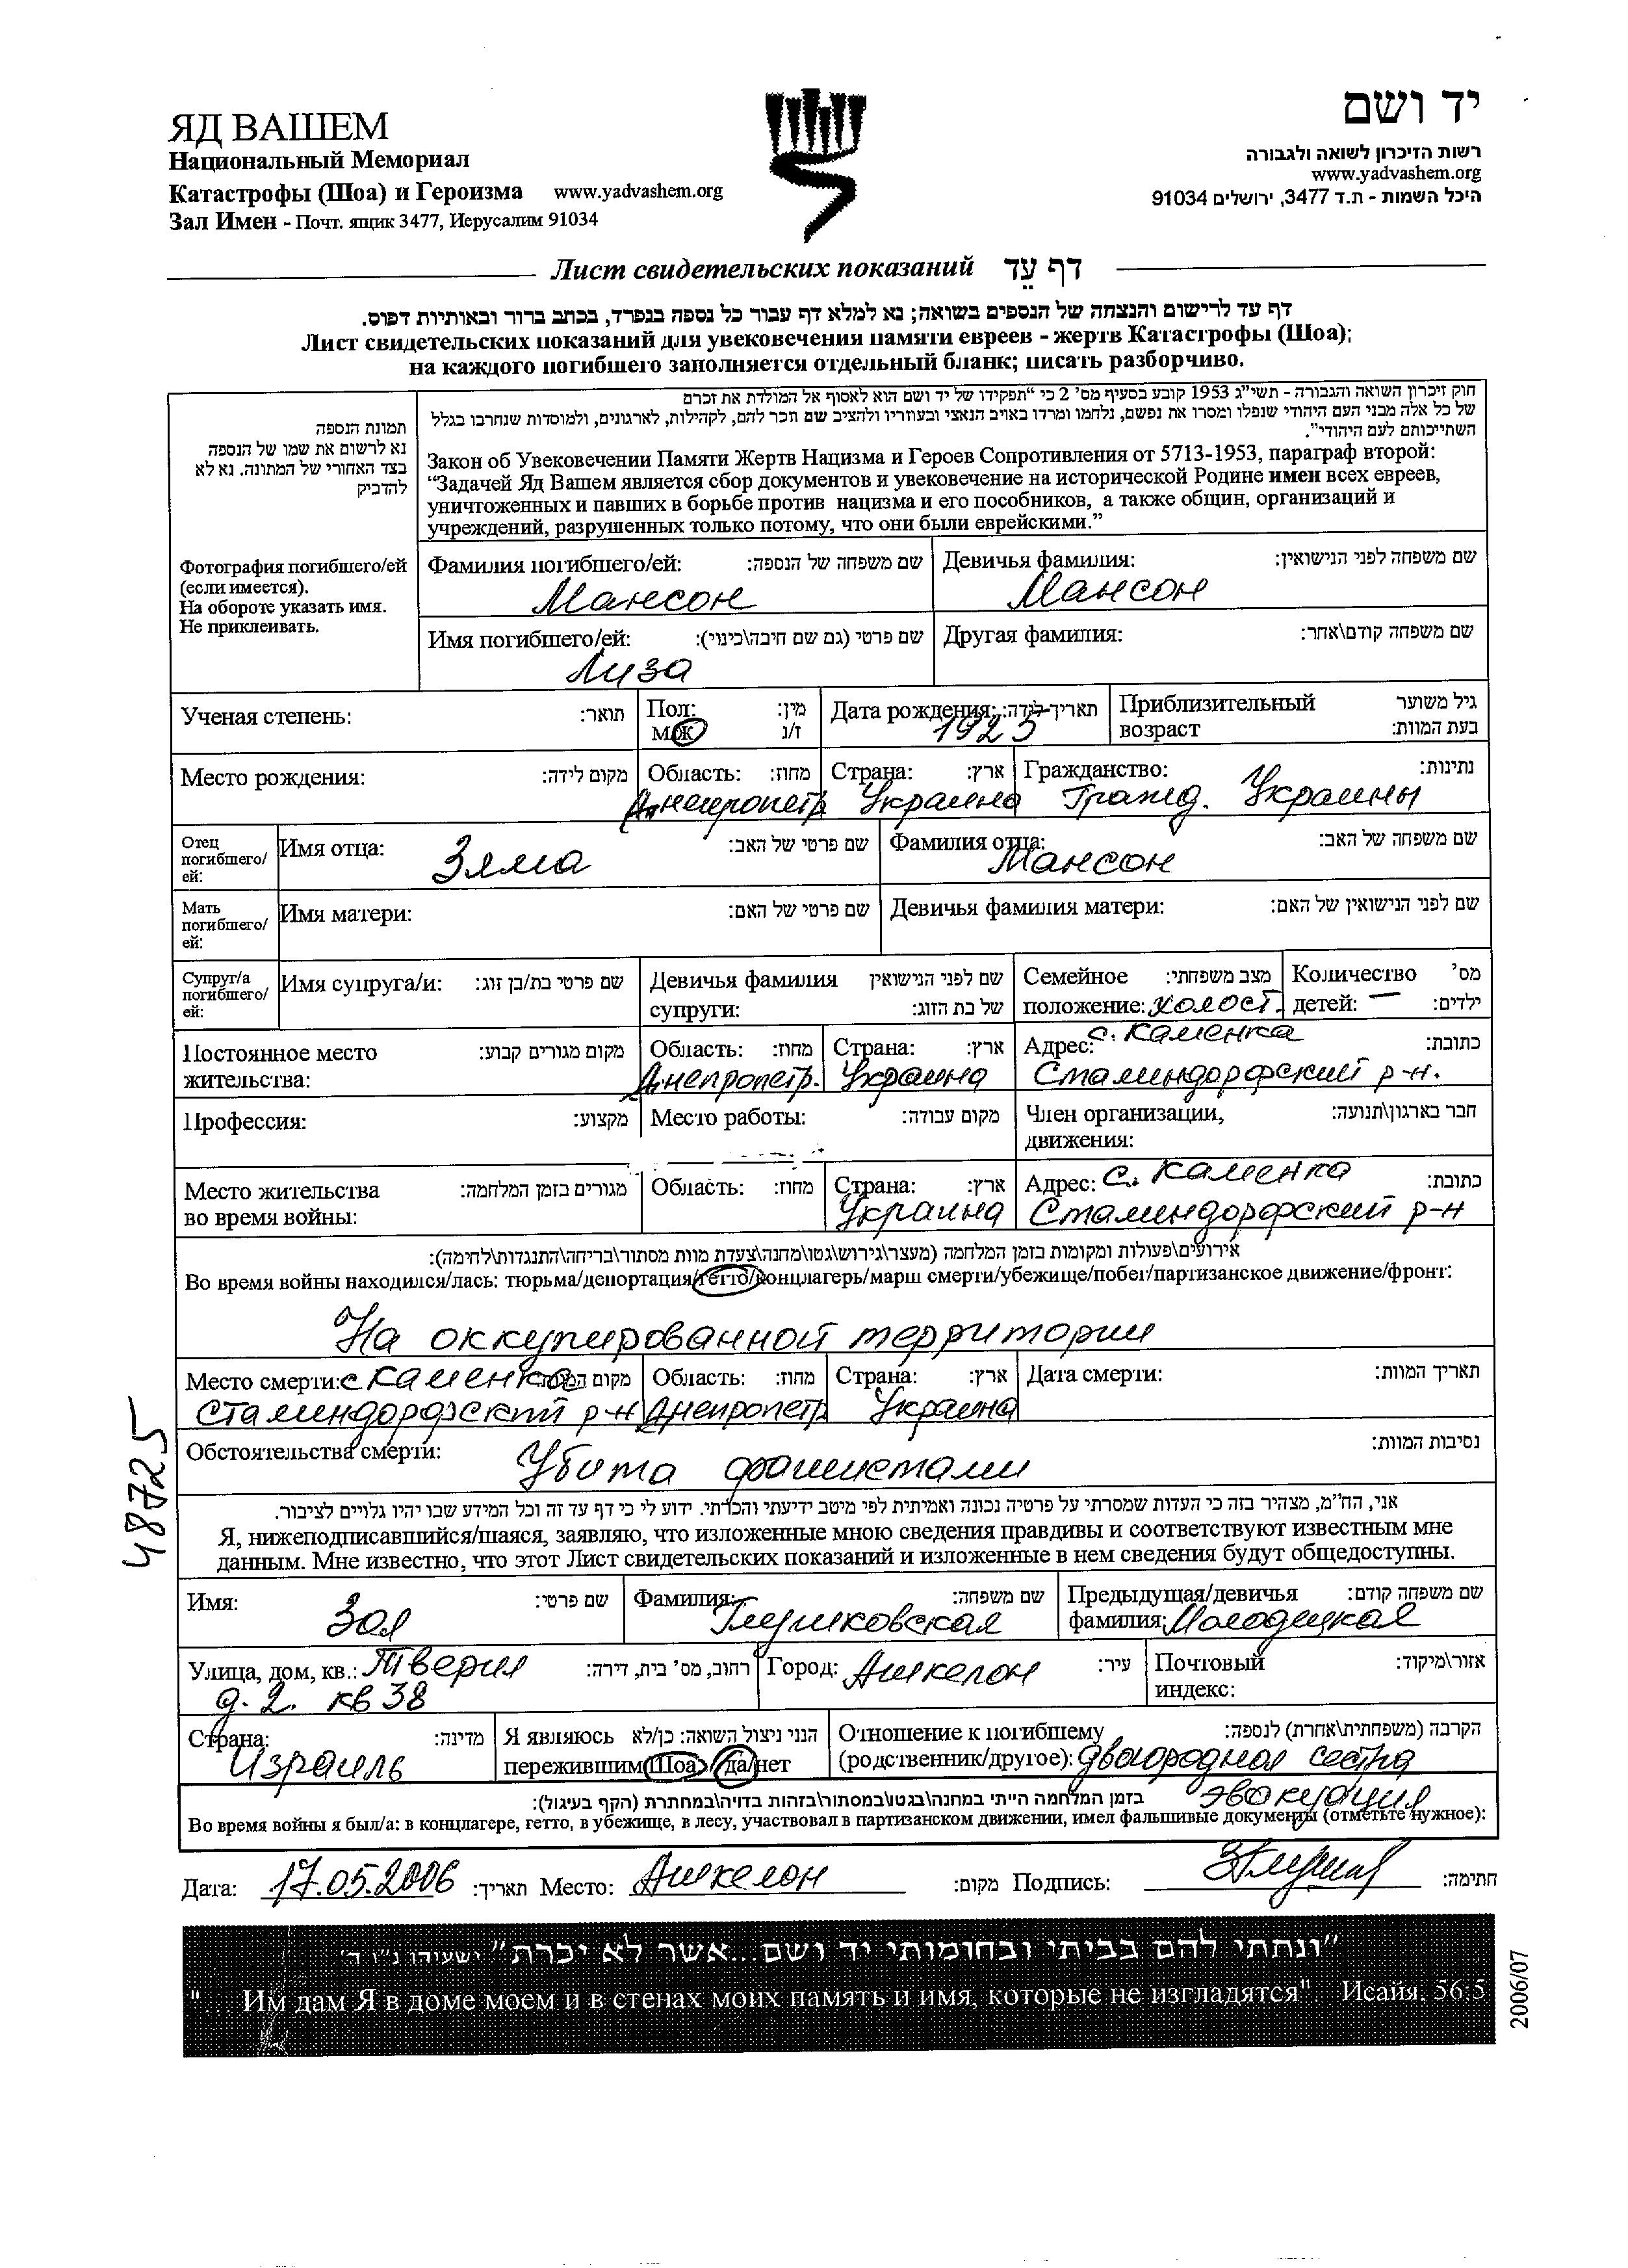 ЯД ВАШЕМ
Национальный Мемориал
Катастрофы (Шоа) и Героизма www.yadvashem.org
Зал Имен - Почт. ящик 3477, Иерусалим 91034
יד ושם
רשות הזיכרון לשואה ולגבורה
www.yadvashem.org
היכל השמות - ת.ד 3477, ירושלים 91034
Лист свидетельских показаний דף עֵד
דף עד לרישום והנצחה של הנספים בשואה; נא למלא דף עבור כל נספה בנפרד, בכתב ברור ובאותיות דפוס.
Лист свидетельских показаний для увековечения памяти евреев - жертв Катастрофы (Шоа);
на каждого погибшего заполняется отдельный бланк; писать разборчиво.
תמונת הנספה
נא לרשום את שמו של הנספה
בצד האחורי של התמונה. נא לא
להדביק
Фотография погибшего/ей
(если имеется).
На обороте указать имя.
Не приклеивать.
חוק זיכרון השואה והגבורה - תשי"ג 1953 קובע בסעיף מס' 2 כי "תפקידו של יד ושם הוא לאסוף אל המולדת את זכרם
של כל אלה מבני העם היהודי שנפלו ומסרו את נפשם, נלחמו ומרדו באויב הנאצי ובעוזריו ולהציב שם וזכר להם, לקהילות, לארגונים, ולמוסדות שנחרבו בגלל
השתייכותם לעם היהודי".
Закон об Увековечении Памяти Жертв Нацизма и Героев Сопротивления от 5713-1953, параграф второй:
"Задачей Яд Вашем является сбор документов и увековечение на исторической Родине имен всех евреев,
уничтоженных и павших в борьбе против нацизма и его пособников, а также общин, организаций и
учреждений, разрушенных только потому, что они были еврейскими."
Фамилия погибшего/ей: שם משפחה של הנספה: Девичья фамилия: שם משפחה לפני הנישואין:
Мансон Мансон
Имя погибшего/ей: שם פרטי (גם שם חיבה\כינוי): Другая фамилия: שם משפחה קודם\אחר:
Лиза
Ученая степень: תואר: Пол: מין: Дата рождения: תאריך לידה: Приблизительный גיל משוער
м/ж ז/נ 1925 возраст בעת המוות:
Место рождения: מקום לידה: Область: מחוז: Страна: ארץ: Гражданство: נתינות:
Днепропетр Украина Гражд. Украины
Отец
погибшего/
ей:
Имя отца: Зяма שם פרטי של האב: Фамилия отца: Мансон שם משפחה של האב:
Мать
погибшего/
ей:
Имя матери: שם פרטי של האם: Девичья фамилия матери: שם לפני הנישואין של האם:
Супруг/а
погибшего/
ей:
Имя супруга/и: שם פרטי בת/בן זוג: Девичья фамилия שם לפני הנישואין Семейное מצב משפחתי: Количество מס'
супруги: של בת הזוג: положение: холост. детей: — ילדים:
Постоянное место מקום מגורים קבוע: Область: מחוז: Страна: ארץ: Адрес: с. Каменка כתובת:
жительства: Днепропетр. Украина Сталиндорфский р-н.
Профессия: מקצוע: Место работы: מקום עבודה: Член организации, חבר בארגון\תנועה:
движения:
Место жительства מגורים בזמן המלחמה: Область: מחוז: Страна: ארץ: Адрес: с. Каменка כתובת:
во время войны: Украина Сталиндорфский р-н
אירועים\פעולות ומקומות בזמן המלחמה (מעצר\גירוש\גטו\מחנה\צעדת מוות מסתור\בריחה\התנגדות\לחימה):
Во время войны находился/лась: тюрьма/депортация/гетто/концлагерь/марш смерти/убежище/побег/партизанское движение/фронт:
На оккупированной территории
Место смерти: с Каменка מקום המוות: Область: מחוז: Страна: ארץ: Дата смерти: תאריך המוות:
Сталиндорфский р-н Днепропетр Украина
Обстоятельства смерти: Убита фашистами נסיבות המוות:
אני, הח"מ, מצהיר בזה כי העדות שמסרתי על פרטיה נכונה ואמיתית לפי מיטב ידיעתי והכרתי. ידוע לי כי דף עד זה וכל המידע שבו יהיו גלויים לציבור.
Я, нижеподписавшийся/шаяся, заявляю, что изложенные мною сведения правдивы и соответствуют известным мне
данным. Мне известно, что этот Лист свидетельских показаний и изложенные в нем сведения будут общедоступны.
Имя: שם פרטי: Фамилия: שם משפחה: Предыдущая/девичья שם משפחה קודם:
Зоя Глушковская фамилия: Молодецкая
Улица, дом, кв.: Тверия רחוב, מס' בית, דירה: Город: Ашкелон עיר: Почтовый אזור\מיקוד:
д. 2. кв 38 индекс:
Страна: מדינה: Я являюсь הנני ניצול השואה: כן/לא Отношение к погибшему הקרבה (משפחתית\אחרת) לנספה:
Израиль пережившим Шоа: да/нет (родственник/другое): двоюродная сестра
בזמן המלחמה הייתי במחנה\בגטו\במסתור\בזהות בדויה\במחתרת (הקף בעיגול): эвакуация
Во время войны я был/а: в концлагере, гетто, в убежище, в лесу, участвовал в партизанском движении, имел фальшивые документы (отметьте нужное):
Дата: 17.05.2006 תאריך: Место: Ашкелон מקום: Подпись: חתימה:
"ונתתי להם בביתי ובחומותי יד ושם...אשר לא יכרת" ישעיהו נ"ו ה'
"... Им дам Я в доме моем и в стенах моих память и имя, которые не изгладятся". Исайя, 56:5
48725
2006/07